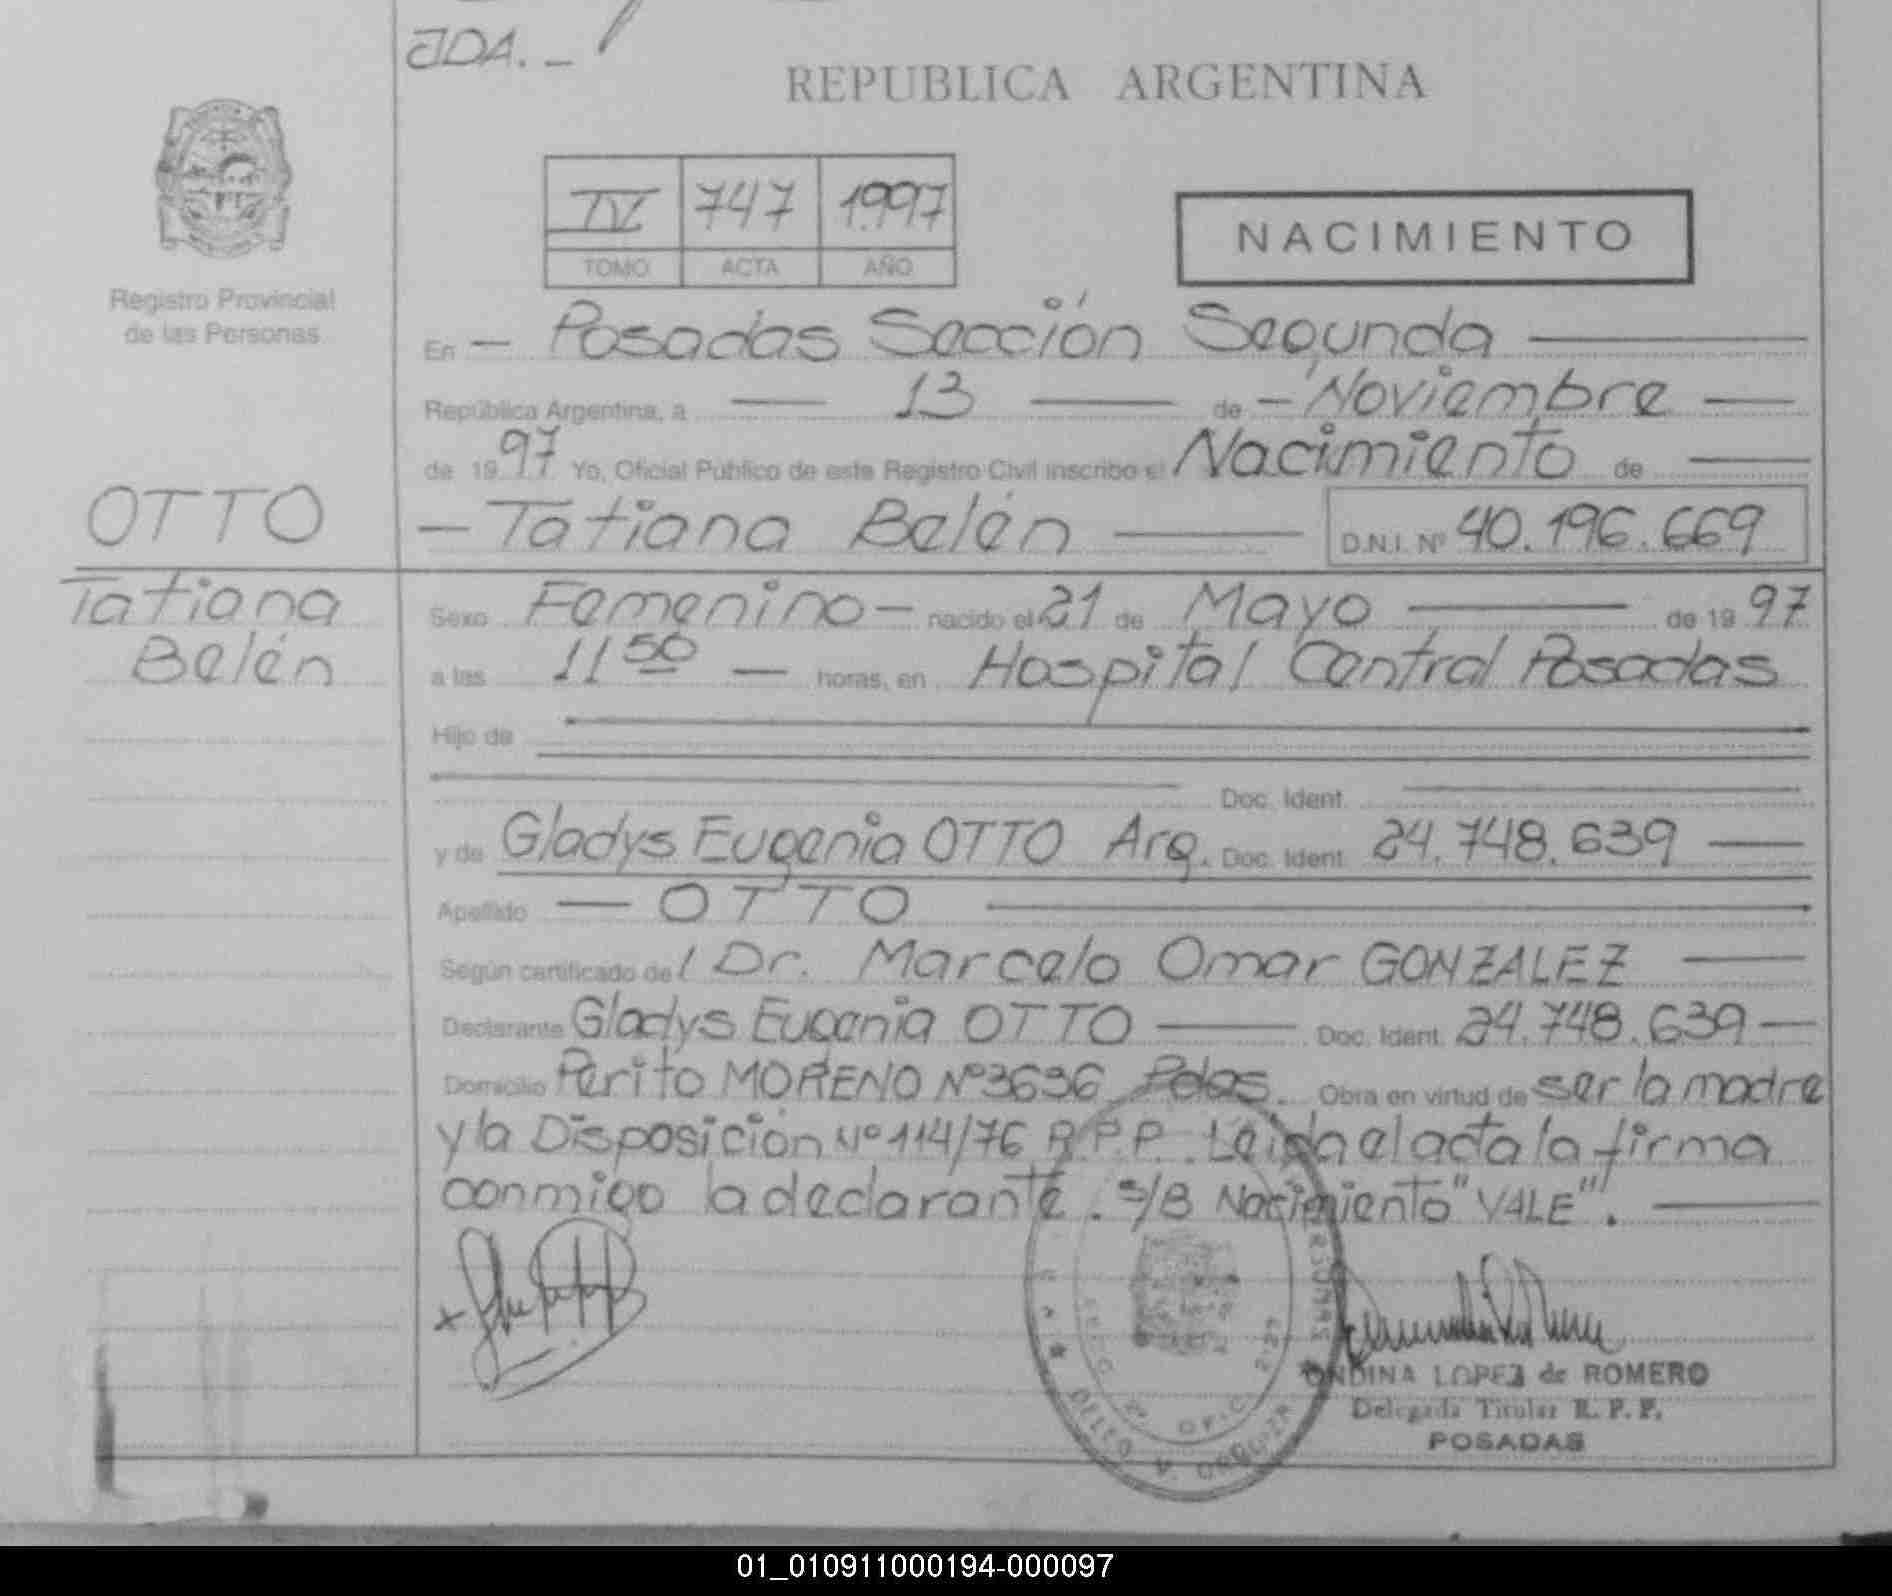 JDA. -
REPUBLICA ARGENTINA
IV 747 1.997
TOMO ACTA AÑO
NACIMIENTO
Registro Provincial
de las Personas
En - Posadas Sección Segunda
República Argentina, a 13 de - Noviembre
de 1997 Yo, Oficial Público de este Registro Civil inscribo el Nacimiento de
OTTO
- Tatiana Belén D.N.I. Nº 40.196.669
Tatiana
Belén
Sexo Femenino - nacido el 21 de Mayo de 1997
a las 11 50 horas, en Hospital Central Posadas
Hijo de
Doc. Ident.
y de Gladys Eugenia OTTO Arg. Doc. Ident. 24.748.639
Apellido - OTTO
Según certificado del Dr. Marcelo Omar GONZALEZ
Declarante Gladys Eugenia OTTO Doc. Ident. 24.748.639
Domicilio Perito MORENO Nº 3636 Pdas. Obra en virtud de ser la madre
y la Disposición Nº 114/76 R.P.P. Leida el acta la firma
conmigo la declarante. S/B Nacimiento "VALE".
ONDINA LOPEZ de ROMERO
Delegada Titular R. P. P.
POSADAS
01_010911000194-000097